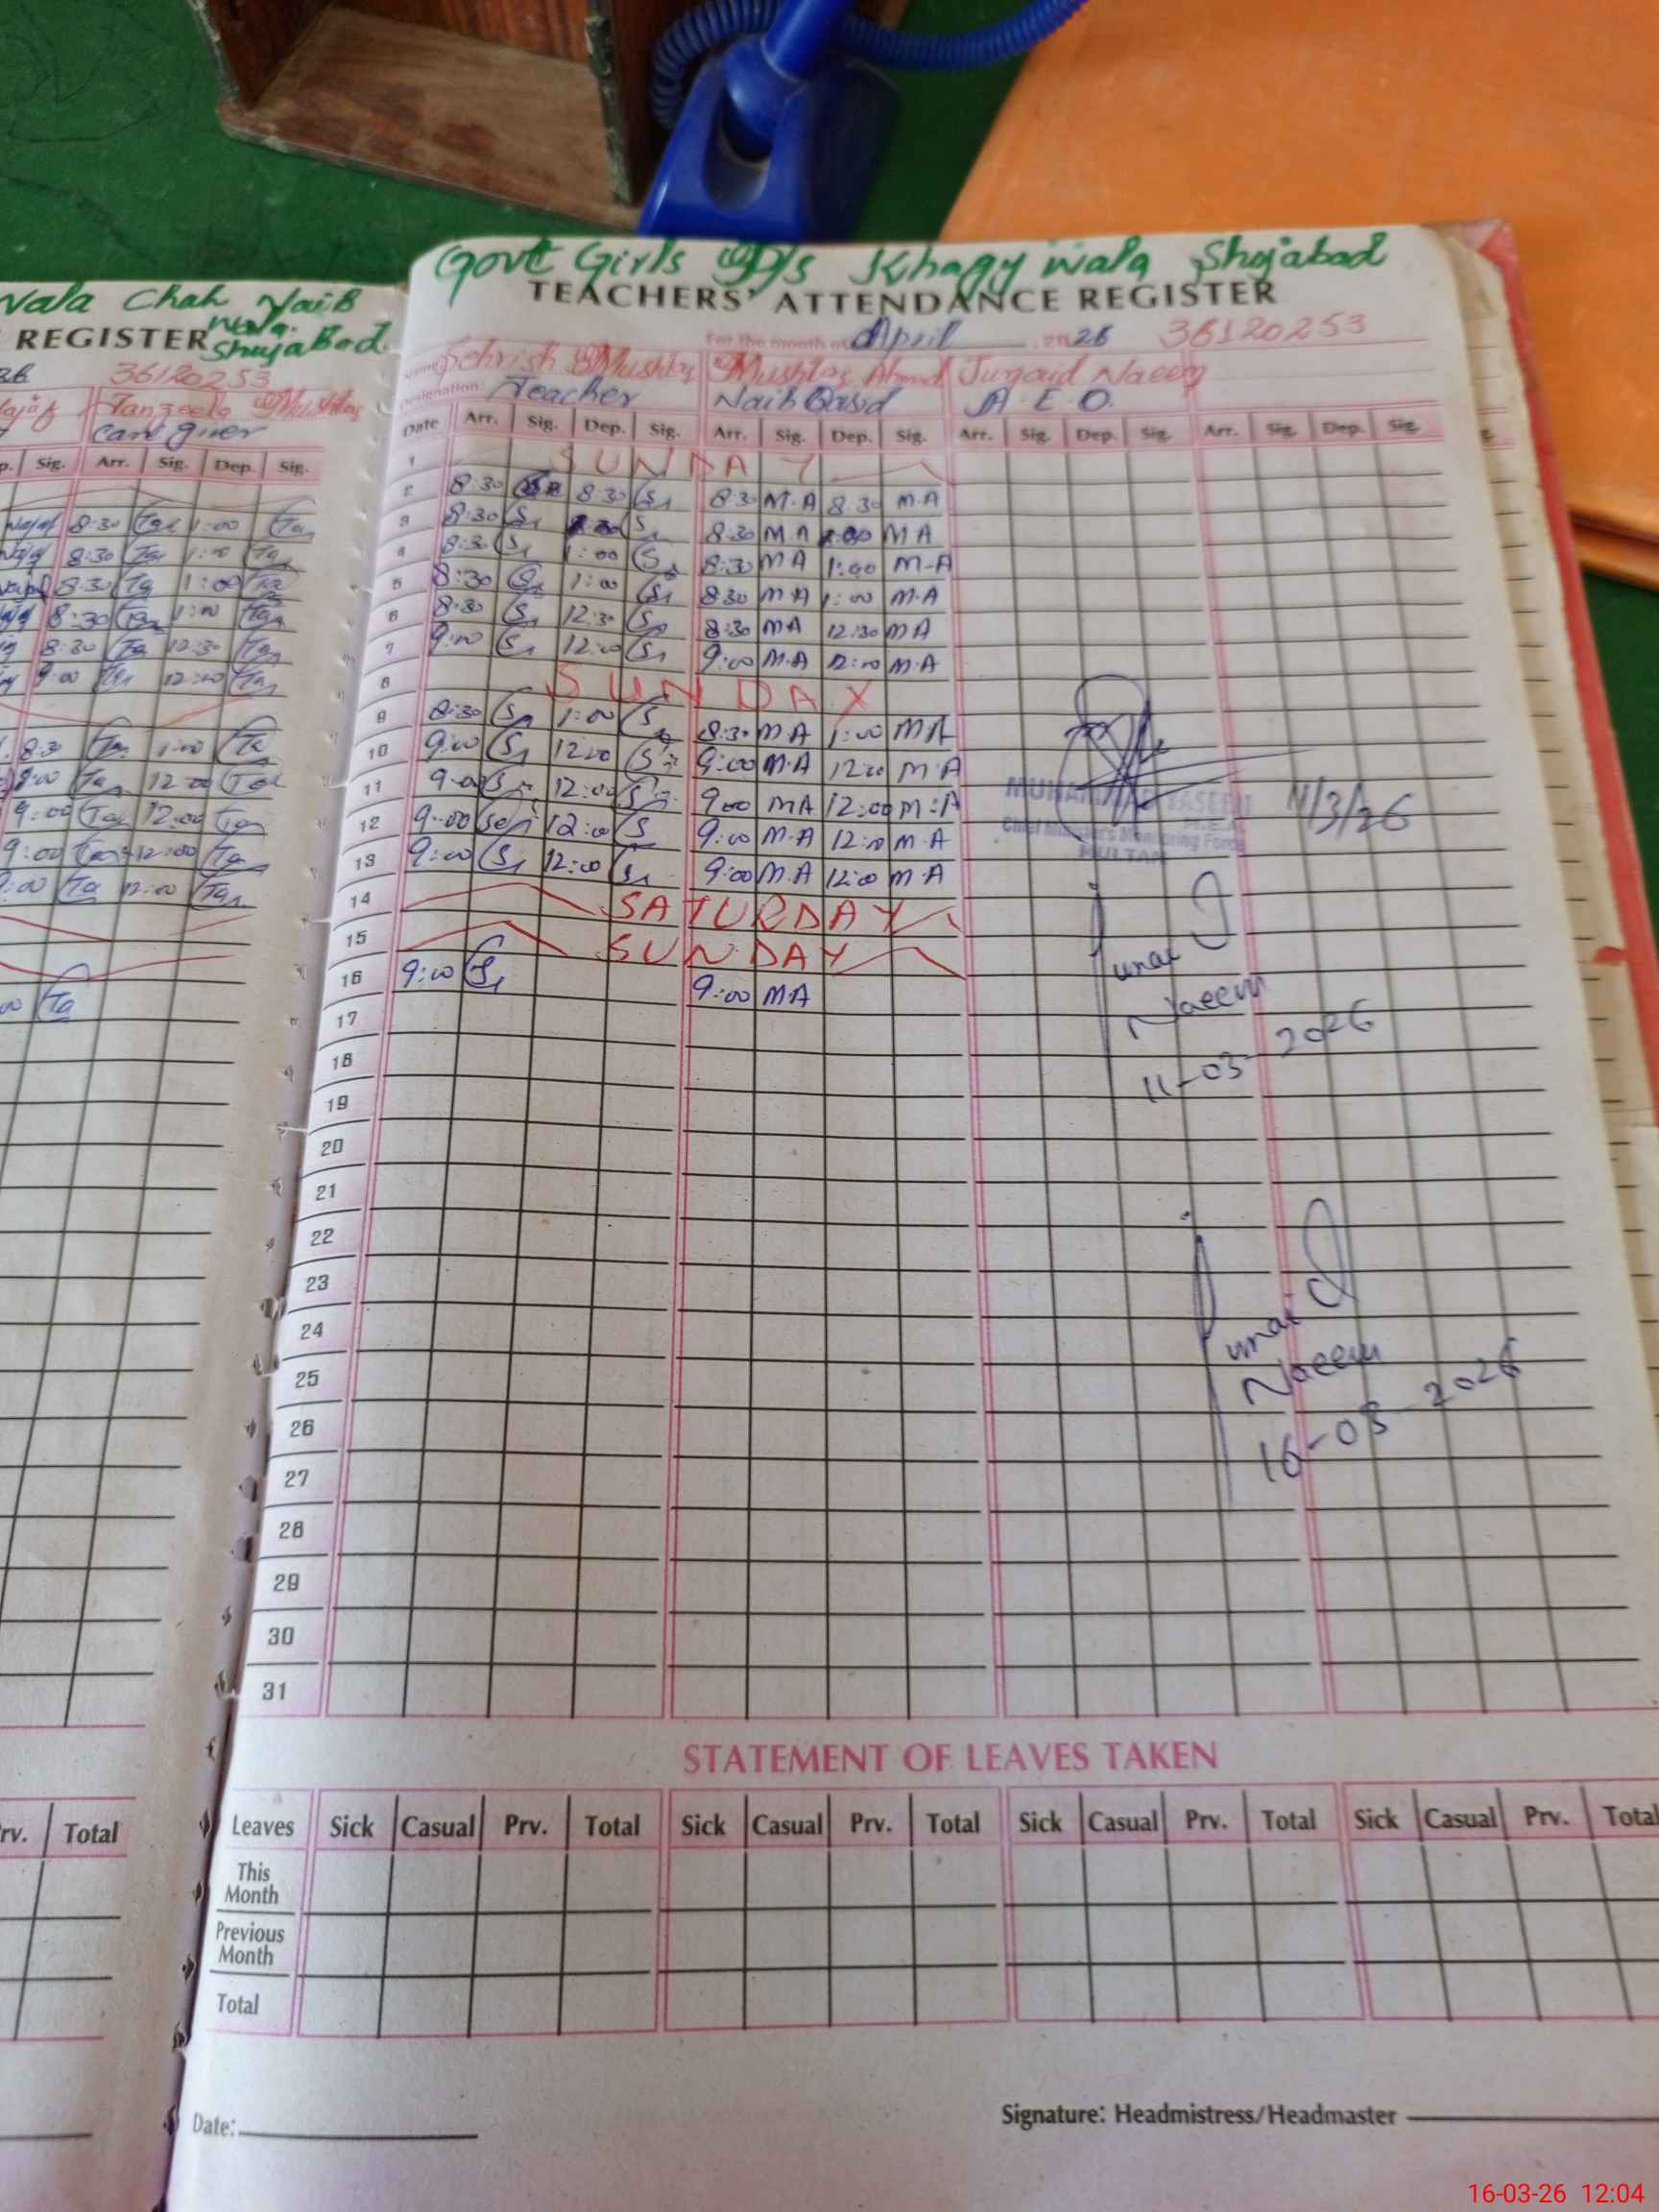 Wala Chah Naib
REGISTER Wala
ShujaBad
36120253
Tanzeela Mushtaq
Care giver
Sig. Arr. Sig. Dep. Sig.
8:30 Tan 1:00 Ta
8:30 Ta 1:00 Ta
8:30 Ta 1:00 Ta
8:30 Ta 1:00 Ta
8:30 Ta 12:30 Ta
9:00 Ta 12:00 Ta
8:30 Ta 1:00 Ta
9:00 Ta 12:00 Ta
9:00 Ta 12:00 Ta
9:00 Ta 12:00 Ta
9:00 Ta 12:00 Ta
Ta
rv. Total
Govt Girls P/s Khagy wala Shujabad
TEACHERS' ATTENDANCE REGISTER
For the month of April 2026 36120253
Name: Sehrish Mushtaq Mushtaq Ahmad Junaid Naeem
Designation: Teacher Naib Qasid A.E.O.
Date Arr. Sig. Dep. Sig. Arr. Sig. Dep. Sig. Arr. Sig. Dep. Sig. Arr. Sig. Dep. Sig.
1 SUNDAY
2 8:30 8:30 S 8:30 M.A 8:30 M.A
3 8:30 S S 8:30 M.A 1:00 MA
4 8:30 S 1:00 S 8:30 MA 1:00 M-A
5 8:30 S 1:00 S 8:30 M.A 1:00 M.A
6 8:30 S 12:30 S 8:30 MA 12:30 MA
7 9:00 S 12:00 S 9:00 M.A 12:00 M.A
8 SUNDAY
9 8:30 S 1:00 S 8:30 M.A 1:00 MA
10 9:00 S 12:00 S 9:00 M.A 12:00 M.A
11 9:00 S 12:00 S 9:00 MA 12:00 M.A
12 9:00 S 12:00 S 9:00 M.A 12:00 M.A
13 9:00 S 12:00 S 9:00 M.A 12:00 M.A
14 SATURDAY
15 SUNDAY
16 9:00 S 9:00 MA
17
18
19
20
21
22
23
24
25
26
27
28
29
30
31
MUHAMMAD YASEEN
Chief Minister's Monitoring Force
MULTAN
11/3/26
Junaid
Naeem
11-03-2026
Junaid
Naeem
16-03-2026
STATEMENT OF LEAVES TAKEN
Leaves Sick Casual Prv. Total Sick Casual Prv. Total Sick Casual Prv. Total Sick Casual Prv. Total
This
Month
Previous
Month
Total
Date:
Signature: Headmistress/Headmaster
16-03-26 12:04